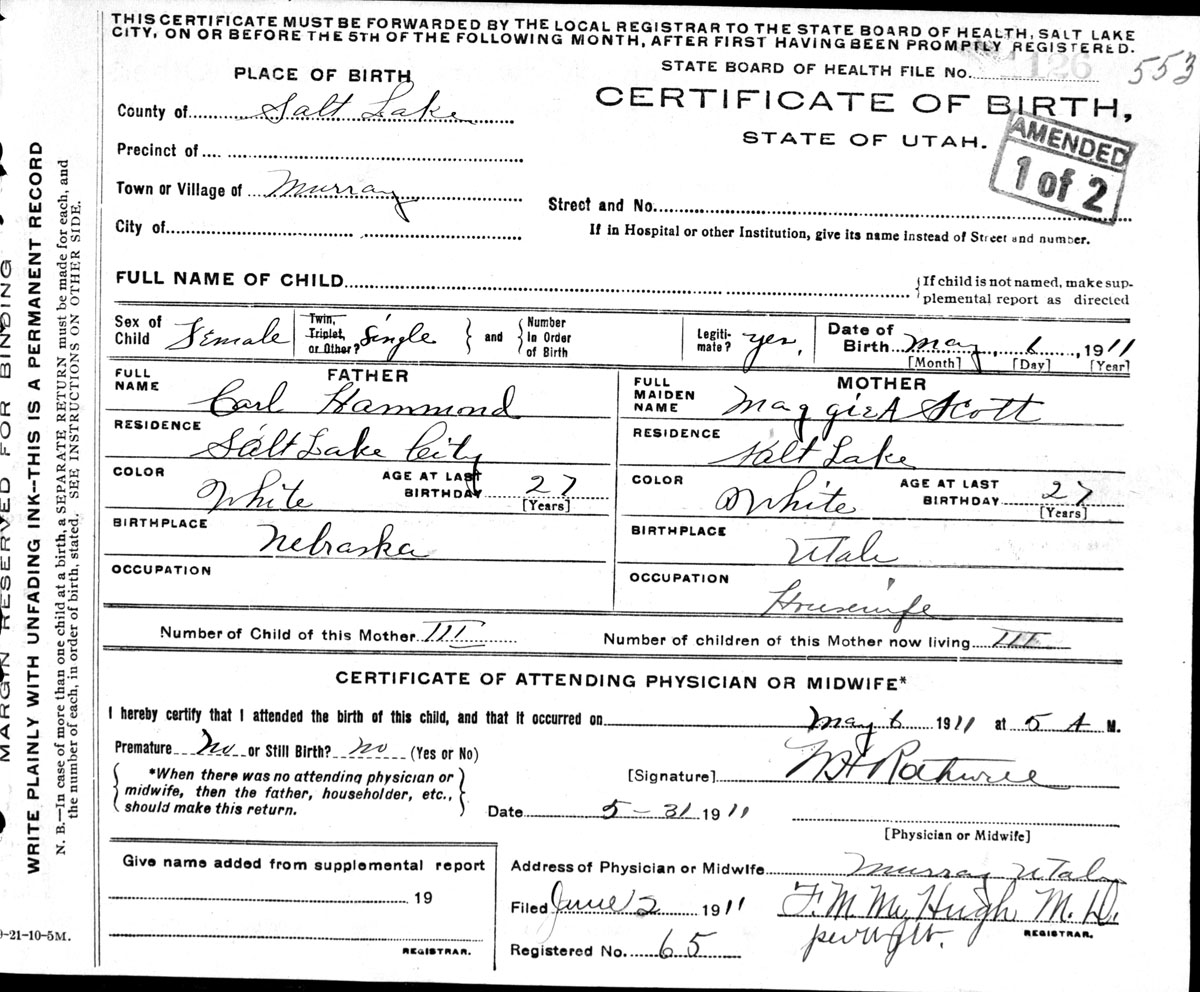 THIS CERTIFICATE MUST BE FORWARDED BY THE LOCAL REGISTRAR TO THE STATE BOARD OF HEALTH, SALT LAKE
CITY, ON OR BEFORE THE 5TH OF THE FOLLOWING MONTH, AFTER FIRST HAVING BEEN PROMPTLY REGISTERED.
STATE BOARD OF HEALTH FILE No. 126 553
PLACE OF BIRTH
CERTIFICATE OF BIRTH,
STATE OF UTAH.
AMENDED
1 of 2
County of Salt Lake
Precinct of
Town or Village of Murray
Street and No.
City of
If in Hospital or other Institution, give its name instead of Street and number.
FULL NAME OF CHILD
If child is not named, make sup-
plemental report as directed
Sex of Child Female
Twin, Triplet, or Other? Single
and
Number In Order of Birth
Legiti-mate? yes,
Date of Birth May 6, 1911
[Month] [Day] [Year]
FATHER
FULL NAME Carl Hammond
RESIDENCE Salt Lake City
COLOR White AGE AT LAST BIRTHDAY 27
[Years]
BIRTHPLACE Nebraska
OCCUPATION
MOTHER
FULL MAIDEN NAME Maggie A Scott
RESIDENCE Salt Lake
COLOR White AGE AT LAST BIRTHDAY 27
[Years]
BIRTHPLACE Utah
OCCUPATION Housewife
Number of Child of this Mother III Number of children of this Mother now living III
CERTIFICATE OF ATTENDING PHYSICIAN OR MIDWIFE*
I hereby certify that I attended the birth of this child, and that it occurred on May 6 1911 at 5 A M.
Premature No or Still Birth? no (Yes or No)
*When there was no attending physician or
midwife, then the father, householder, etc.,
should make this return.
[Signature]
Date 5-31 1911
[Physician or Midwife]
Give name added from supplemental report
19
REGISTRAR.
Address of Physician or Midwife Murray Utah
Filed June 2 1911 F. M. McHugh M. D.
REGISTRAR.
Registered No. 65
MARGIN RESERVED FOR BINDING
WRITE PLAINLY WITH UNFADING INK--THIS IS A PERMANENT RECORD
N. B.—In case of more than one child at a birth, a SEPARATE RETURN must be made for each, and
the number of each, in order of birth, stated. SEE INSTRUCTIONS ON OTHER SIDE.
9-21-10-5M.